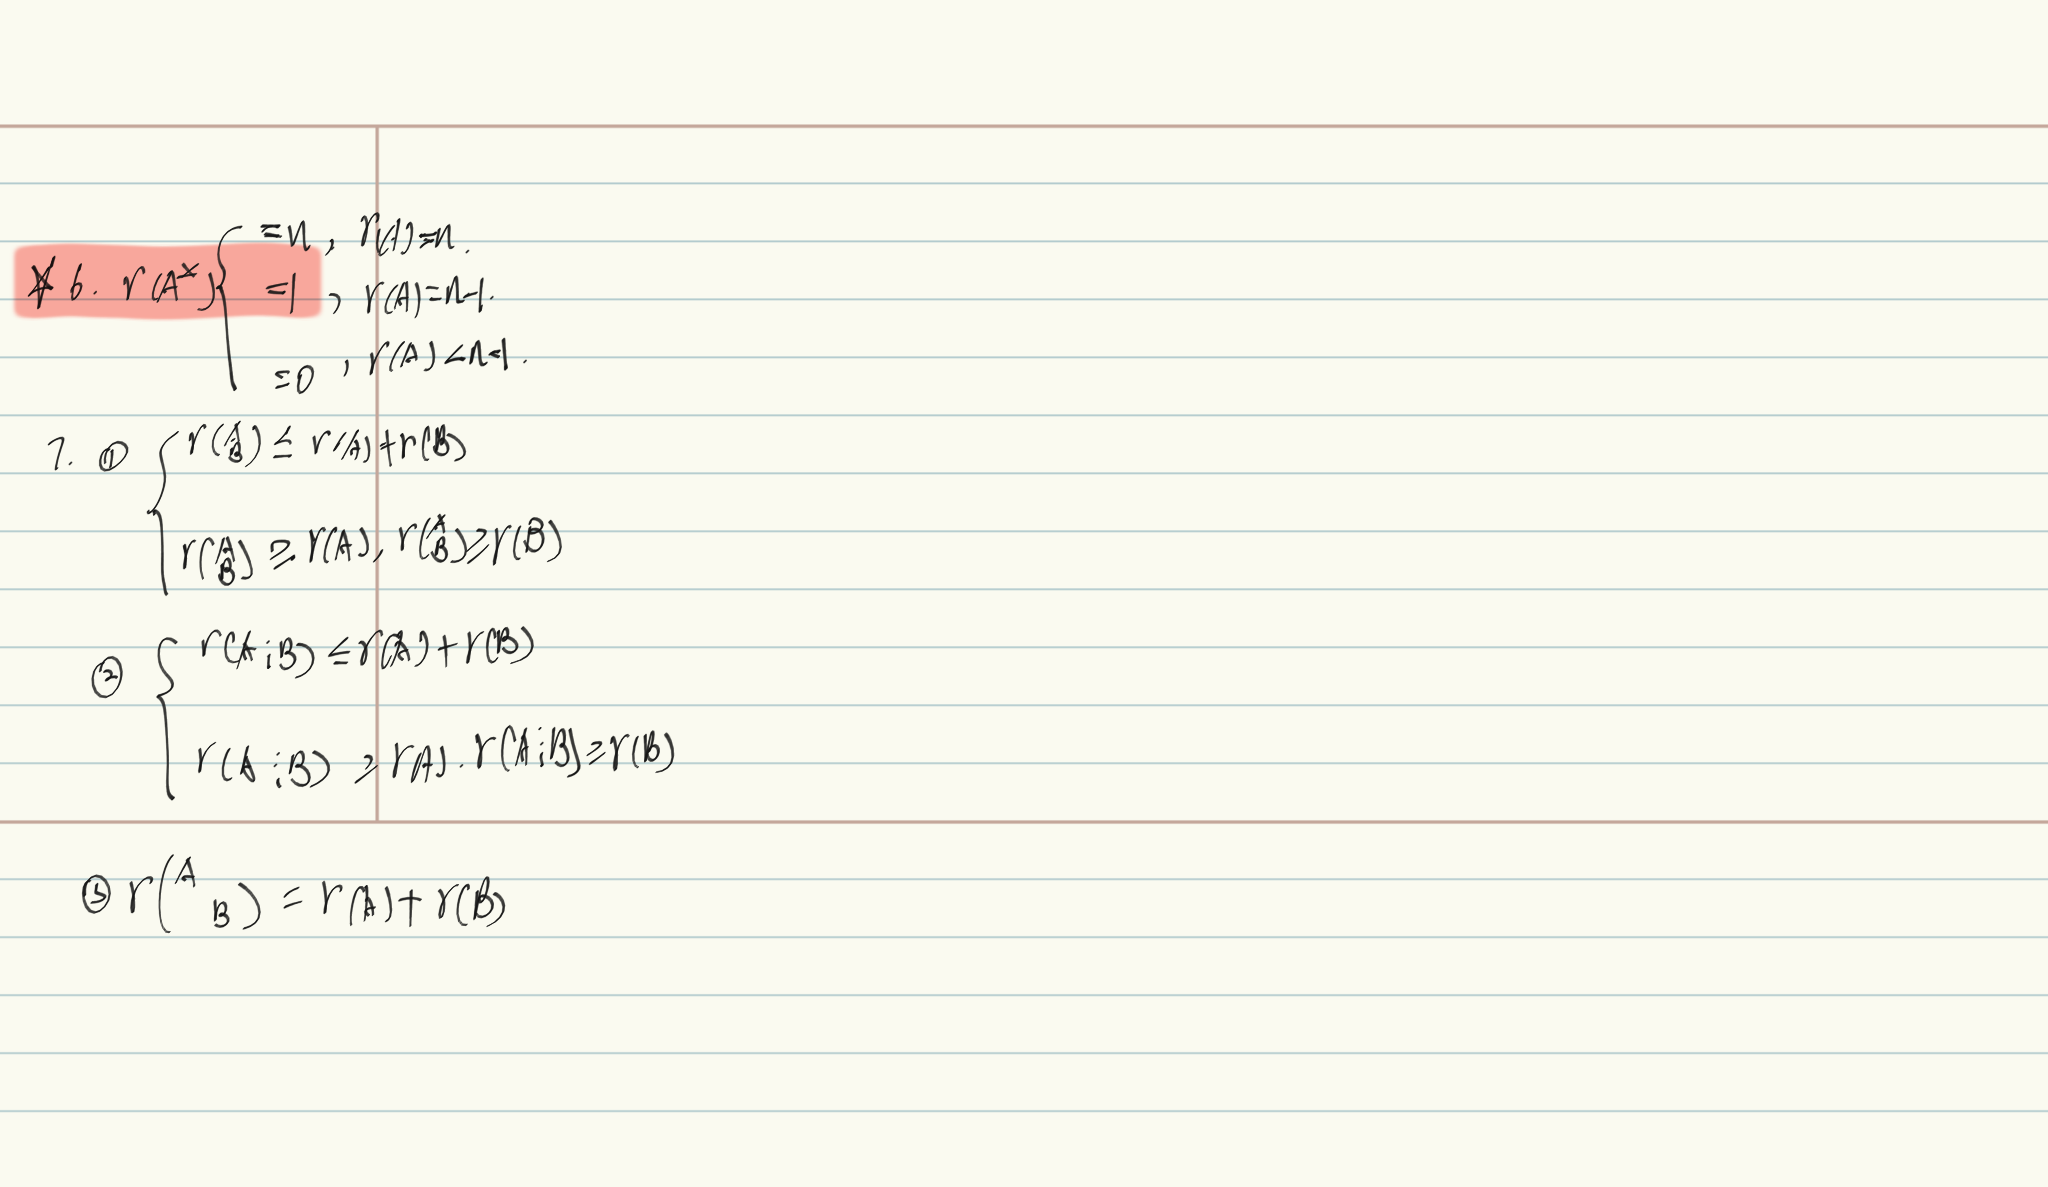 * 6. r(A*) { =n, r(A)=n.
=1, r(A)=n-1.
=0, r(A)<n-1.
7. ① { r(A/B) ≤ r(A)+r(B)
r(A/B) ≥ r(A), r(A/B) ≥ r(B)
② { r(A⋮B) ≤ r(A)+r(B)
r(A⋮B) ≥ r(A). r(A⋮B) ≥ r(B)
③ r(A B) = r(A)+r(B)